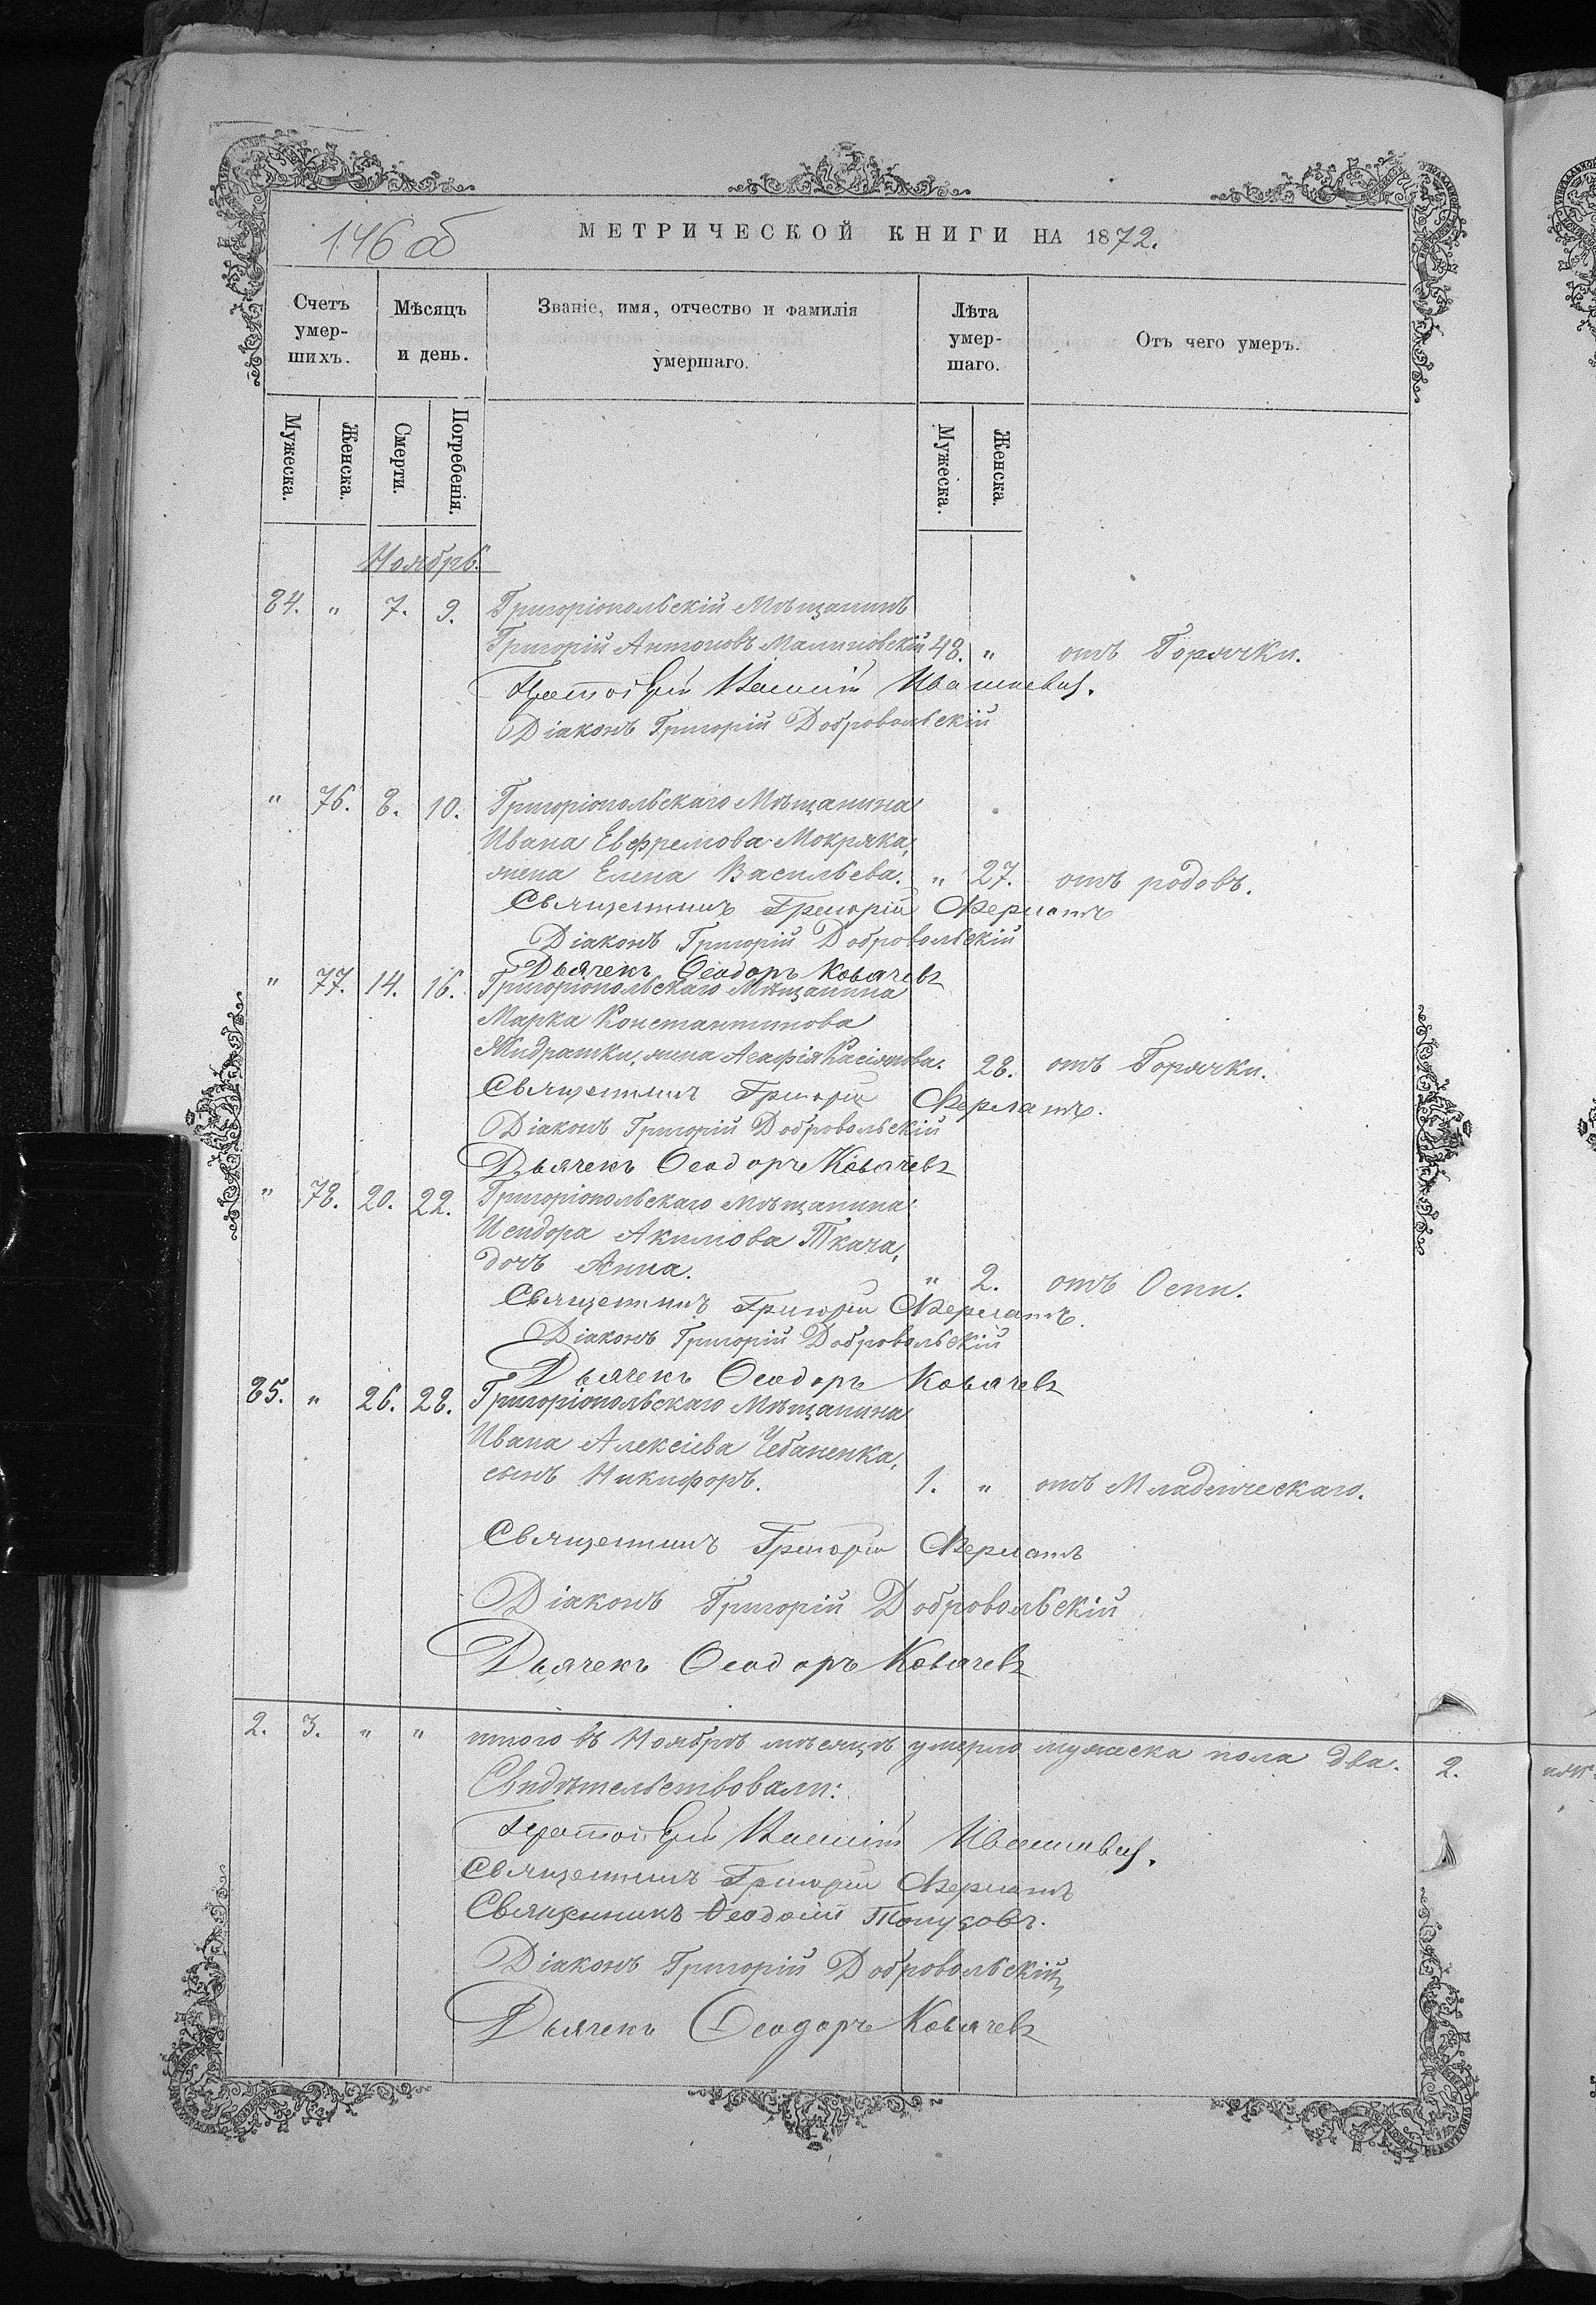 146 об
МЕТРИЧЕСКОЙ КНИГИ НА 1872.
Счетъ умер-шихъ.
Мѣсяцъ и день.
Званіе, имя, отчество и фамилія умершаго.
Лѣта умер-шаго.
Отъ чего умеръ.
Мужеска.
Женска.
Смерти.
Погребенія.
Мужеска.
Женска.
Ноябрь.
84. " 7. 9. Григоріопольскій Мѣщанинъ
Григорій Антоновъ Малиновскій 48. " отъ Горячки.
Протоіерей
Діаконъ Григорій Добровольскій
" 76. 8. 10. Григоріопольскаго Мѣщанина
Ивана Евфремова Мокряка,
жена Елена Васильева. " 27. отъ родовъ.
Священникъ Григорій
Діаконъ Григорій Добровольскій
Дьячекъ Ѳеодоръ Ковачевъ
" 77. 14. 16. Григоріопольскаго Мѣщанина
Марка Константинова
жена Агафія Касіянова. 28. отъ Горячки.
Священникъ Григорій
Діаконъ Григорій Добровольскій
Дьячекъ Ѳеодоръ Ковачевъ
" 78. 20. 22. Григоріопольскаго Мѣщанина
Исидора Акимова Ткача,
дочь Анна. " 2. отъ Оспи.
Священникъ Григорій
Діаконъ Григорій Добровольскій
Дьячекъ Ѳеодоръ Ковачевъ
85. " 26. 28. Григоріопольскаго Мѣщанина
Ивана Алексіева Чебаненка,
сынъ Никифоръ. 1. " отъ Младенческаго.
Священникъ Григорій
Діаконъ Григорій Добровольскій
Дьячекъ Ѳеодоръ Ковачевъ
2. 3. " " итого въ Ноябрѣ мѣсяцѣ умерло мужеска пола два. 2.
Свидѣтельствовали:
Протоіерей
Священникъ Григорій
Священникъ Ѳеодосій
Діаконъ Григорій Добровольскій
Дьячекъ Ѳеодоръ Ковачевъ